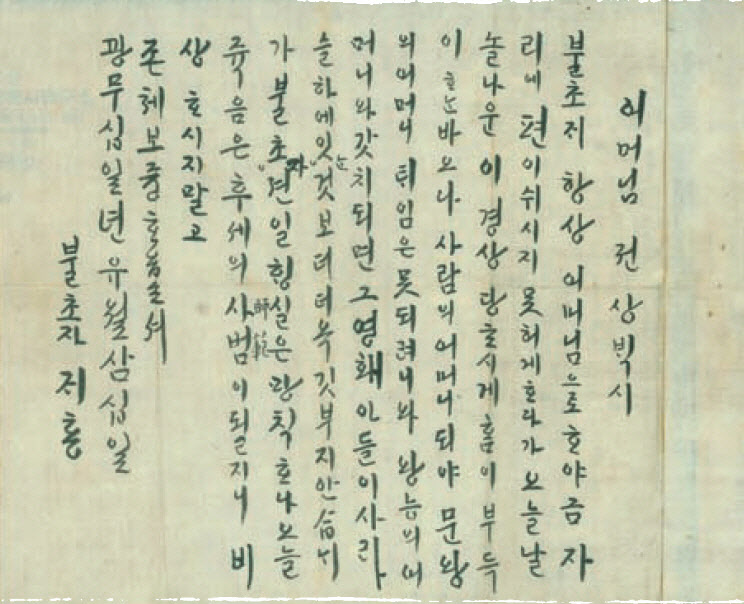 어머님 젼 상빅시
불초지 항상 어머님으로 ᄒᆞ야금 자
리에 편이 쉬시지 못허게 ᄒᆞ다가 오늘날
놀나운 이 경상 당ᄒᆞ시게 홈이 부득
이 ᄒᆞᆫ 바오나 사람의 어머니 되야 문왕
의 어머니 태임은 못되려니와 왕능의 어
머니와 갓치 되면 그 영홰 아들이 사라
슬하에 잇는 것 보더 더욕 깃부지 안슴늬
가 불초자 젼일 힝실은 광칙ᄒᆞ나 오늘
쥭음은 후세의 사범師範이 될지니 비
상 ᄒᆞ시지 말고
존체 보즁 ᄒᆞ옵소셔
광무십일년 유월 삼십일
불초자 지홍